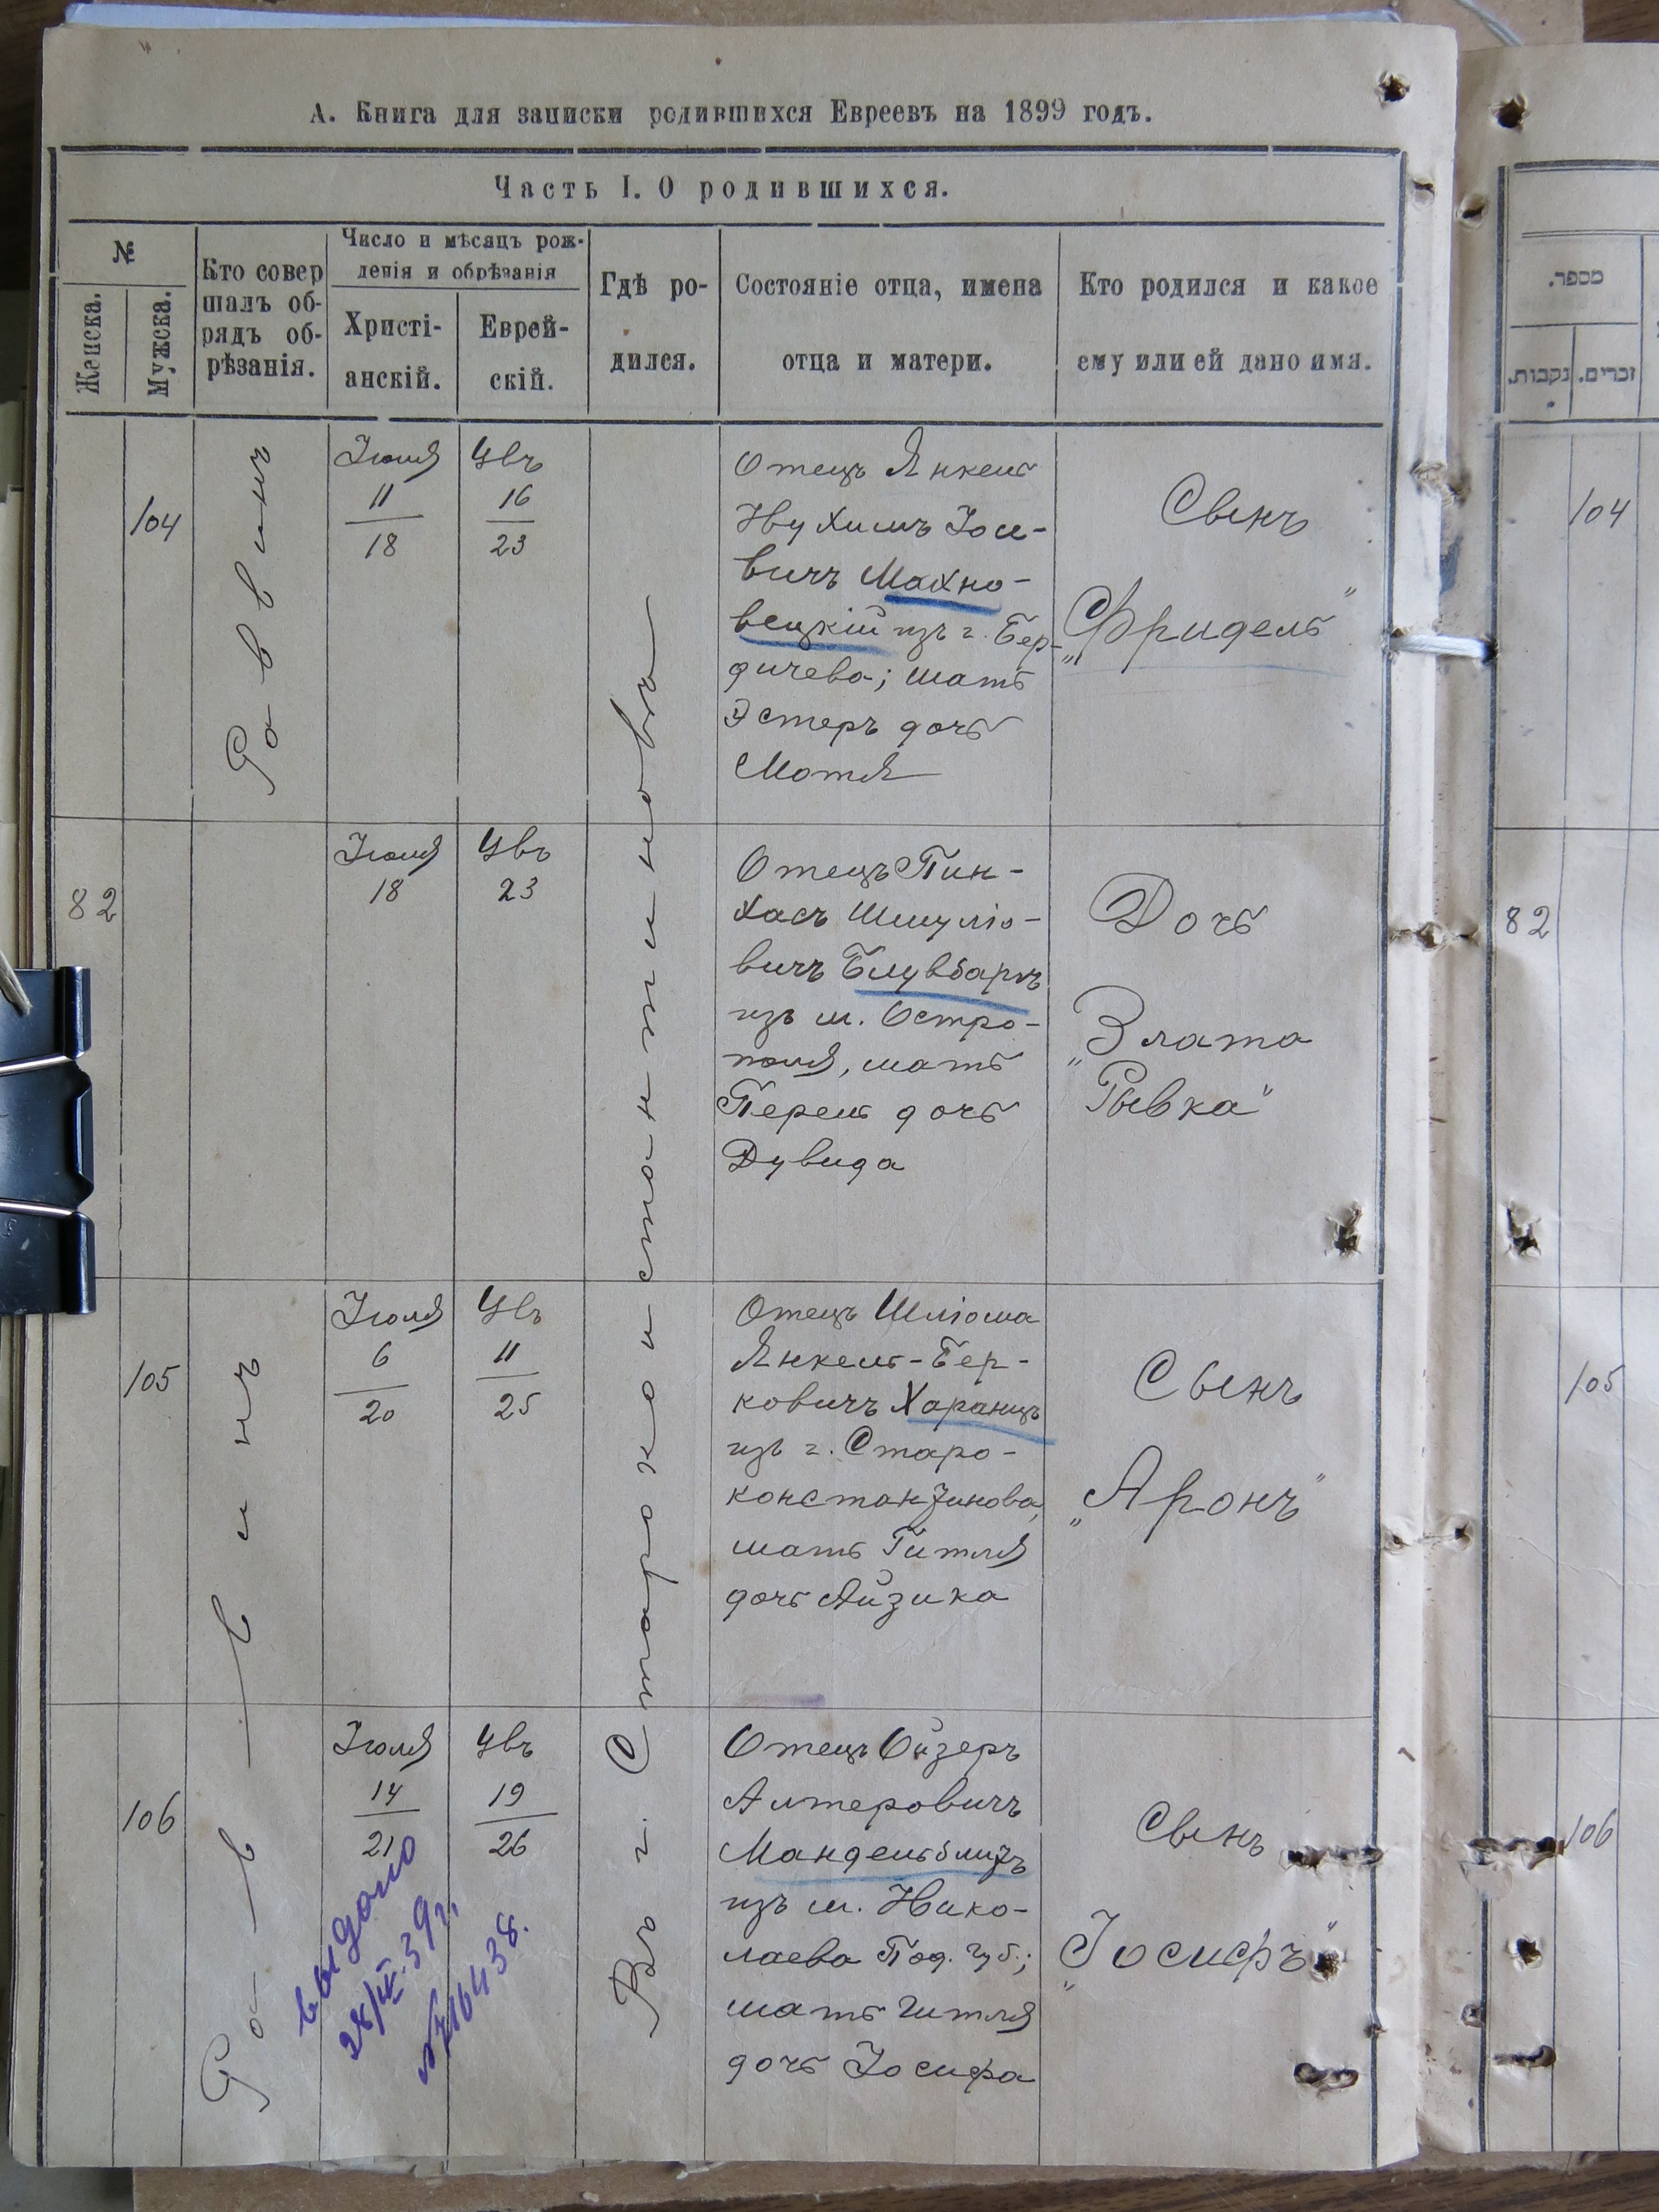 А. Книга для записки родившихся Евреевъ на 1899 годъ.
Часть I. О родившихся.
№
Женска.
Мужска.
Кто совер
шалъ об-
рядъ об-
рѣзанія.
Число и мѣсяцъ рож-
денія и обрѣзанія
Христі-
анскій.
Еврей-
скій.
Гдѣ ро-
дился.
Состояніе отца, имена
отца и матери.
Кто родился и какое
ему или ей дано имя.
מספר.
נקבות.
זכרים.
Въ г. Староконстантиновѣ
104
Раввинъ
Іюля
11
18
Ꙗвъ
16
23
Отецъ Янкель
Нухимъ Іосе-
вичъ Махно-
вецкій изъ г. Бер-
дичева; мать
Эстеръ дочь
Мотля
Сынъ
„Фридель"
104
82
Іюля
18
23
Отецъ Пин-
хасъ Шмуліо-
вичъ Блувбарпъ
изъ м. Остро-
поля, мать
Перель дочь
Дувида
Дочь
„Злата
Рывка"
82
105
Раввинъ
Іюля
6
20
11
25
Отецъ Шліома
Янкель-Бер-
ковичъ Харанцъ
изъ г. Старо-
константинова,
мать Гитля
дочь Айзика
Сынъ
„Аронъ"
105
106
Раввъ
Іюля
14
21
19
26
Отецъ Ойзеръ
Алтеровичъ
Мандельблитъ
изъ м. Нико-
лаева Под. губ.;
мать Гитля
дочь Іосифа
Сынъ
„Іосифъ"
106
выдано
28/IV.39г.
№716438.